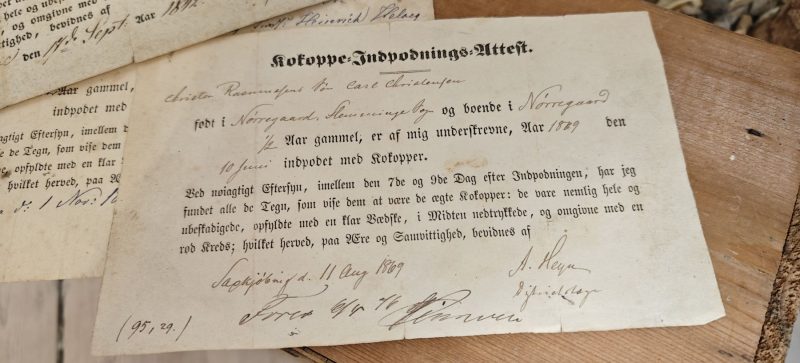 hele og
og omgivne med
tighed, bevidnes af
den 17de Sept. Aar 1842
Heinrich Helweg
Aar gammel,
indpodet med
agtigt Eftersyn, imellem d
de Tegn, som vise dem
e, opfyldte med en klar
hvilket herved, paa Æ
d. 1 Nov:
Kokoppe-Indpodnings-Attest.
Christen Rasmussens Søn Carl Christensen
født i Nørregaard, Slemminge Sogn og boende i Nørregaard
1/2 Aar gammel, er af mig underskrevne, Aar 1869 den
10 Juni indpodet med Kokopper.
Ved nøiagtigt Eftersyn, imellem den 7de og 9de Dag efter Indpodningen, har jeg
fundet alle de Tegn, som vise dem at være de ægte Kokopper: de vare nemlig hele og
ubeskadigede, opfyldte med en klar Vædske, i Midten nedtrykkede, og omgivne med en
rød Kreds; hvilket herved, paa Ære og Samvittighed, bevidnes af
Saxkjøbing d. 11 Aug 1869
A. Heyn
Districtslæge
(95, 29.)